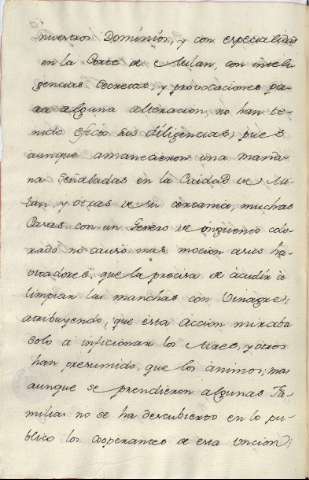 inversos Dominios, y con especialidad
en la Corte de Milan, con inteli
gencias secretas, y provocaciones pa
ra alguna alteracion, no han te
nido efecto sus diligencias, pues
aunque amanecieron una maña
na señaladas en la Ciudad de Mi
lan, y otras de su cercania, muchas
Casas con un genero de inguento colo
rado no causó mas mocion a sus ha
vitadores, que la precisa de acudir á
limpiar las manchas con Vinagre,
atribuyendo, que esta accion miraba
solo a inficionar los Aires, y otros
han presumido, que los animos, mas
aunque se prendieron algunas Fa
milias no se ha descubierto en lo pu
blico los cooperantes de esta uncion;